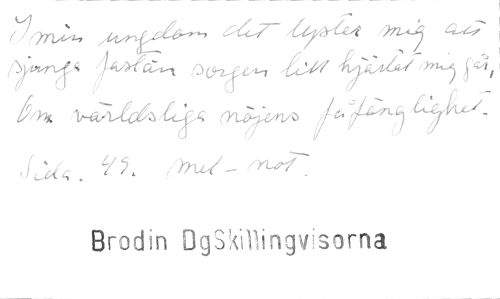 I min ungdom det lyster mig att
sjunga fastän sorgen till hjärtat mig går,
Om världsliga nöjens fåfänglighet.
Sida. 49. mel-not.
Brodin DgSkillingvisorna